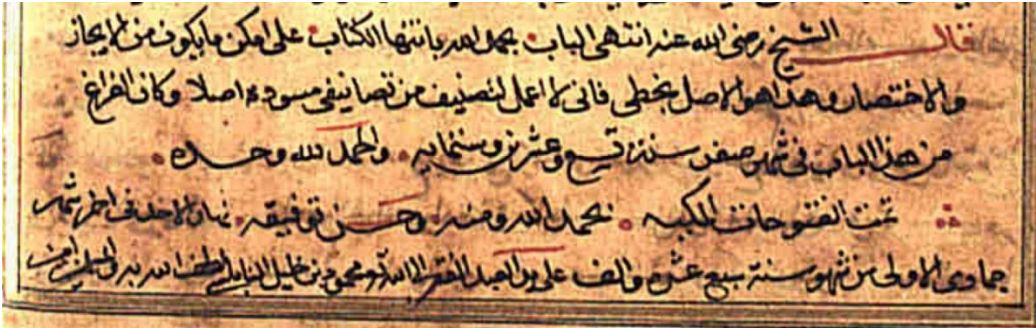 قال الشيخ رضى الله عنه انتهى الباب بحمد الله بانتها الكتاب على امكن ما يكون من الايجاز
والاختصار وهذا هو الاصل بخطى فانى لا اعمل لتصنيف من تصانيفى مسودة اصلا وكان الفراغ
من هذا الباب فى شهر صفر سنة تسع وعشرين وستمايه والحمد لله وحده
تمت الفتوحات المكيه بحمد الله ومنه وحسن توفيقه نهار الاحد فى اخر شهر
جماد الاولى من شهور سنة سبع عشره والف على يد العبد الفقير الى الله محمود بن خليل لطف الله به